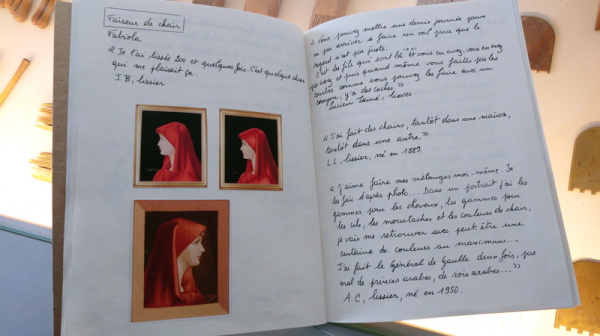 Faiseur de chair
Fabiola
« Je l'ai lissée 200 et quelques fois. C'est quelque chose
qui me plaisait ça
I.B, lissier
« Vous pouvez mettre une demie journée pour
ne pas arriver à faire un œil parce que le
regard n'est pas juste.
C'est les fils qui sont là et vous en avez, vous en avez
pas assez et puis quand même vous faites pas les
courbes comme vous pouvez les faire avec un
crayon, y'a des coches »
Lucien Lainé, lissier.
« J'ai fait des chairs, tantôt dans une maison,
tantôt dans une autre. »
L.L, lissier, né en 1889.
« J'aime faire mes mélanges moi-même. Je
les fais d'après photo... Dans un portrait j'ai les
gammes pour les cheveux, les gammes pour
les cils, les moustaches et les couleurs de chair,
je vais me retrouver avec peut être une
centaine de couleurs au maximum...
J'ai fait le Général de Gaulle deux fois, pas
mal de princes arabes, de rois arabes... »
A.C, lissier, né en 1950.